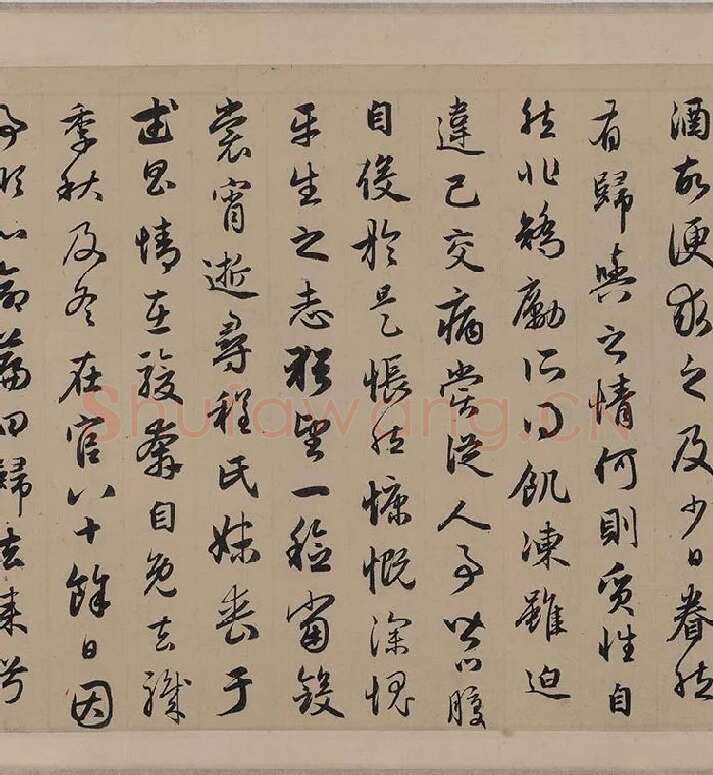 酒故便求之及少日眷然
有歸與之情何則質性自
然非矯勵所得飢凍雖迫
違己交病嘗從人事皆口腹
自役於是悵然慷慨深愧
平生之志猶望一稔當斂
裳宵逝尋程氏妹喪于
武昌情在駿奔自免去職
季秋及冬在官八十餘日因
事順心命篇曰歸去來兮
Shufawang.CN